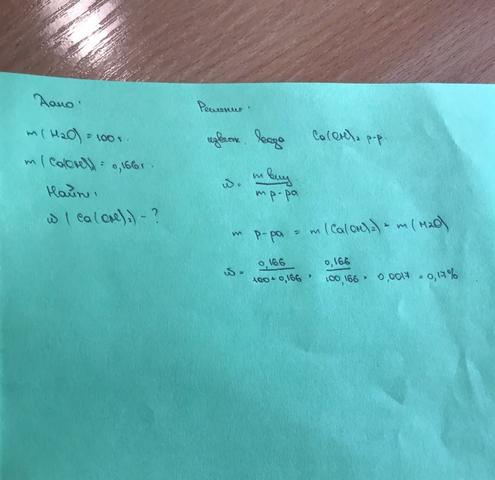 Дано:
m(H2O) = 100 г.
m(Ca(OH)2) = 0,166 г.
Найти:
ω(Ca(OH)2) - ?
Решение:
известк. вода Ca(OH)2 р-р.
ω = m вещ / m р-ра
m р-ра = m(Ca(OH)2) + m(H2O)
ω = 0,166 / 100+0,166 = 0,166 / 100,166 = 0,0017 = 0,17%